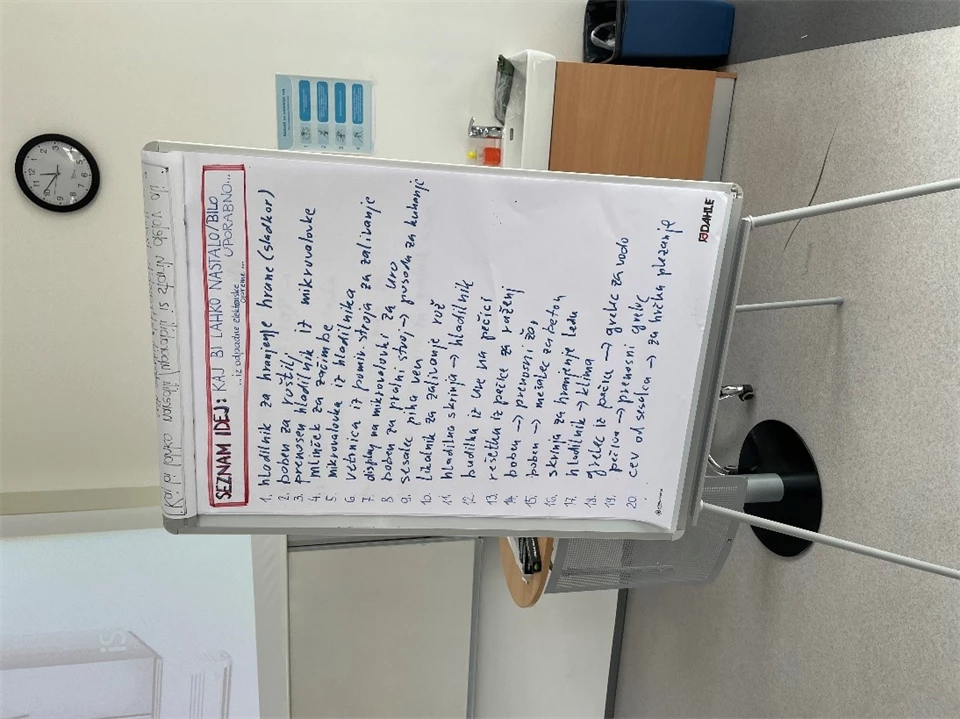 SEZNAM IDEJ: KAJ BI LAHKO NASTALO/BILO UPORABNO...
...iz odpadne elektronske opreme...
1. hladilnik za hranjenje hrane (sladkor)
2. boben za roštilj
3. prenosen hladilnik iz mikrovalovke
4. mlinček za začimbe
5. mikrovalovka iz hladilnika
6. vetrnica iz pomiv. stroja za zalivanje
7. display na mikrovalovki za uro
8. boben za pralni stroj → posoda za kuhanje
9. sesalec piha ven
10. likalnik za zalivanje rož
11. hladilna skrinja → hladilnik
12. budilka iz ure na pečici
13. rešetka iz pečice za raženj
14. boben → prenosni žar
15. boben → mešalec za beton
16. skrinja za hranjenje ledu
17. hladilnik → klima
18. grelec iz pečice → grelec za vodo
19. pečica → prenosni grelec
20. cev od sesalca → za hrčka plezanje
DAHLE